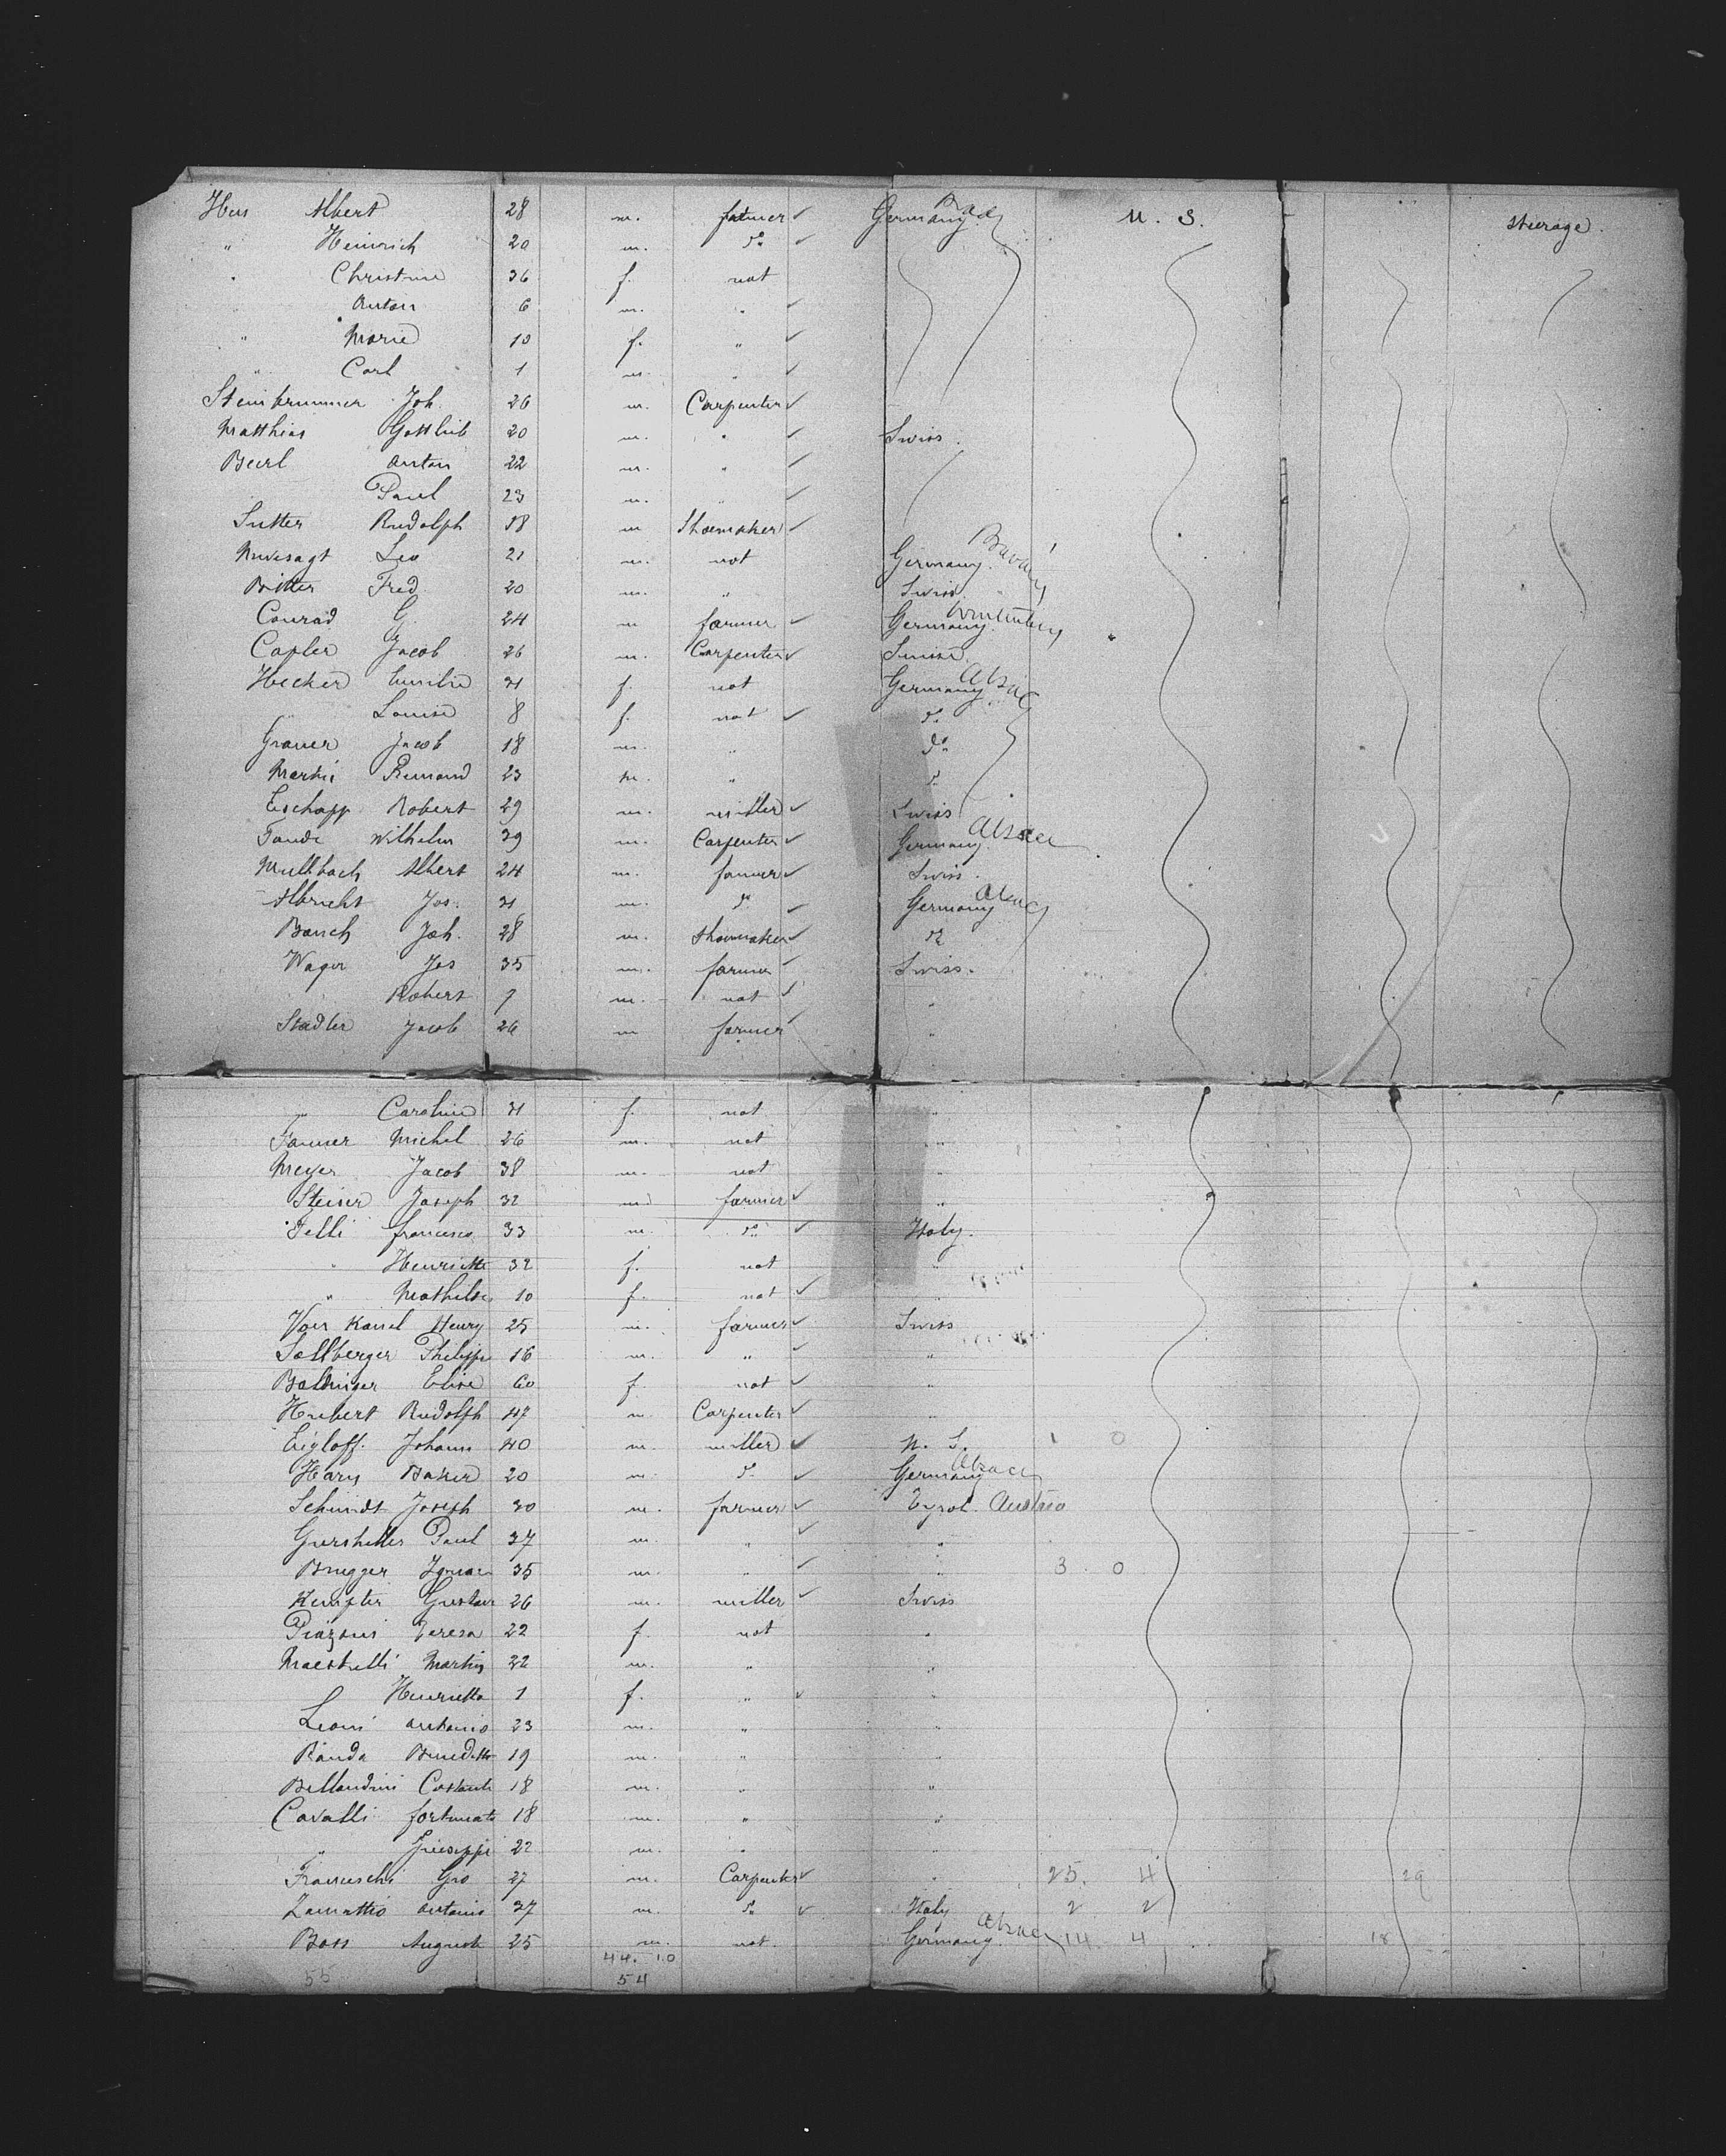 Hus Albert 28 m. farmer ✓ Germany Bad. U. S. steerage.
" Heinrich 20 m. do ✓
" Christine 36 f. not
Anton 6 m. " ✓
" Marie 10 f. " ✓
" Carl 1 m. " ✓
Steinbrunner Joh. 26 m. Carpenter ✓
Matthias Gottlieb 20 m. " ✓ Swiss.
Beerl Anton 22 m. " ✓
Paul 23 m. " ✓
Sutter Rudolph 18 m Shoemaker ✓
Leo 21 m. not Germany. Bavaria
Ritter Fred 20 m. " Swiss "
Conrad G. 24 m farmer ✓ Germany. "
Capler Jacob 26 m. Carpenter ✓ Swiss.
Hecker Emilie 31 f. not Germany Alsac
" Louise 8 f. not ✓ do
Graner Jacob 18 m. " do
Martin 23 m. " do
Eschapp Robert 29 m. miller ✓ Swiss
Wilhelm 39 m. Carpenter ✓ Germany. Alsace
Mullbach Albert 24 m. farmer ✓ Swiss.
Albricht Jos. 31 m. do ✓ Germany Alsac
Bauch Joh. 28 m. Shoemaker ✓ do
Wager Jos 35 m. farmer ✓ Swiss.
Robert 7 m. not ✓ "
Stadler Jacob 26 m farmer ✓ "
" Caroline 31 f. not "
Michel 26 m. not "
Meyer Jacob 38 m. not "
Steiner Joseph 32 m farmer ✓ "
Francesco 33 m. do ✓ Italy.
" Henriette 32 f. not "
" Mathilde 10 f. not ✓ "
Henry 25 m. farmer ✓ Swiss
Sollberger Philipp 16 m. " ✓ "
Baldinger Elise 60 f. not ✓ "
Hubert Rudolph 47 m. Carpenter ✓ "
Eigloff. Johann 40 m. miller ✓ U. S. 1 0
Hary Baker 20 m. do ✓ Germany Alsace
Schmidt Joseph 30 m. farmer ✓ Tyrol. Austria
Paul 37 m. " ✓ "
Brugger Ignaz 35 m. " ✓ " 3. 0
Kempter Gustav 26 m. miller ✓ Swiss
Teresa 22 f. not "
Maestrelli Martin 22 m. " "
Henrietta 1 f. " ✓ "
Leoni Antonio 23 m. " "
Randa Benedetto 19 m. " "
Bellandini Costante 18 m. " "
Cavalli fortunato 18 m. " "
" Giuseppe 22 m. " "
Franceschi Gio 27 m. Carpenter ✓ " 25. 4 29
Antonio 37 m. do ✓ Italy 2 2
Boss August 25 m. not. Germany. Alsac 14. 4 18
44. 10
55 54